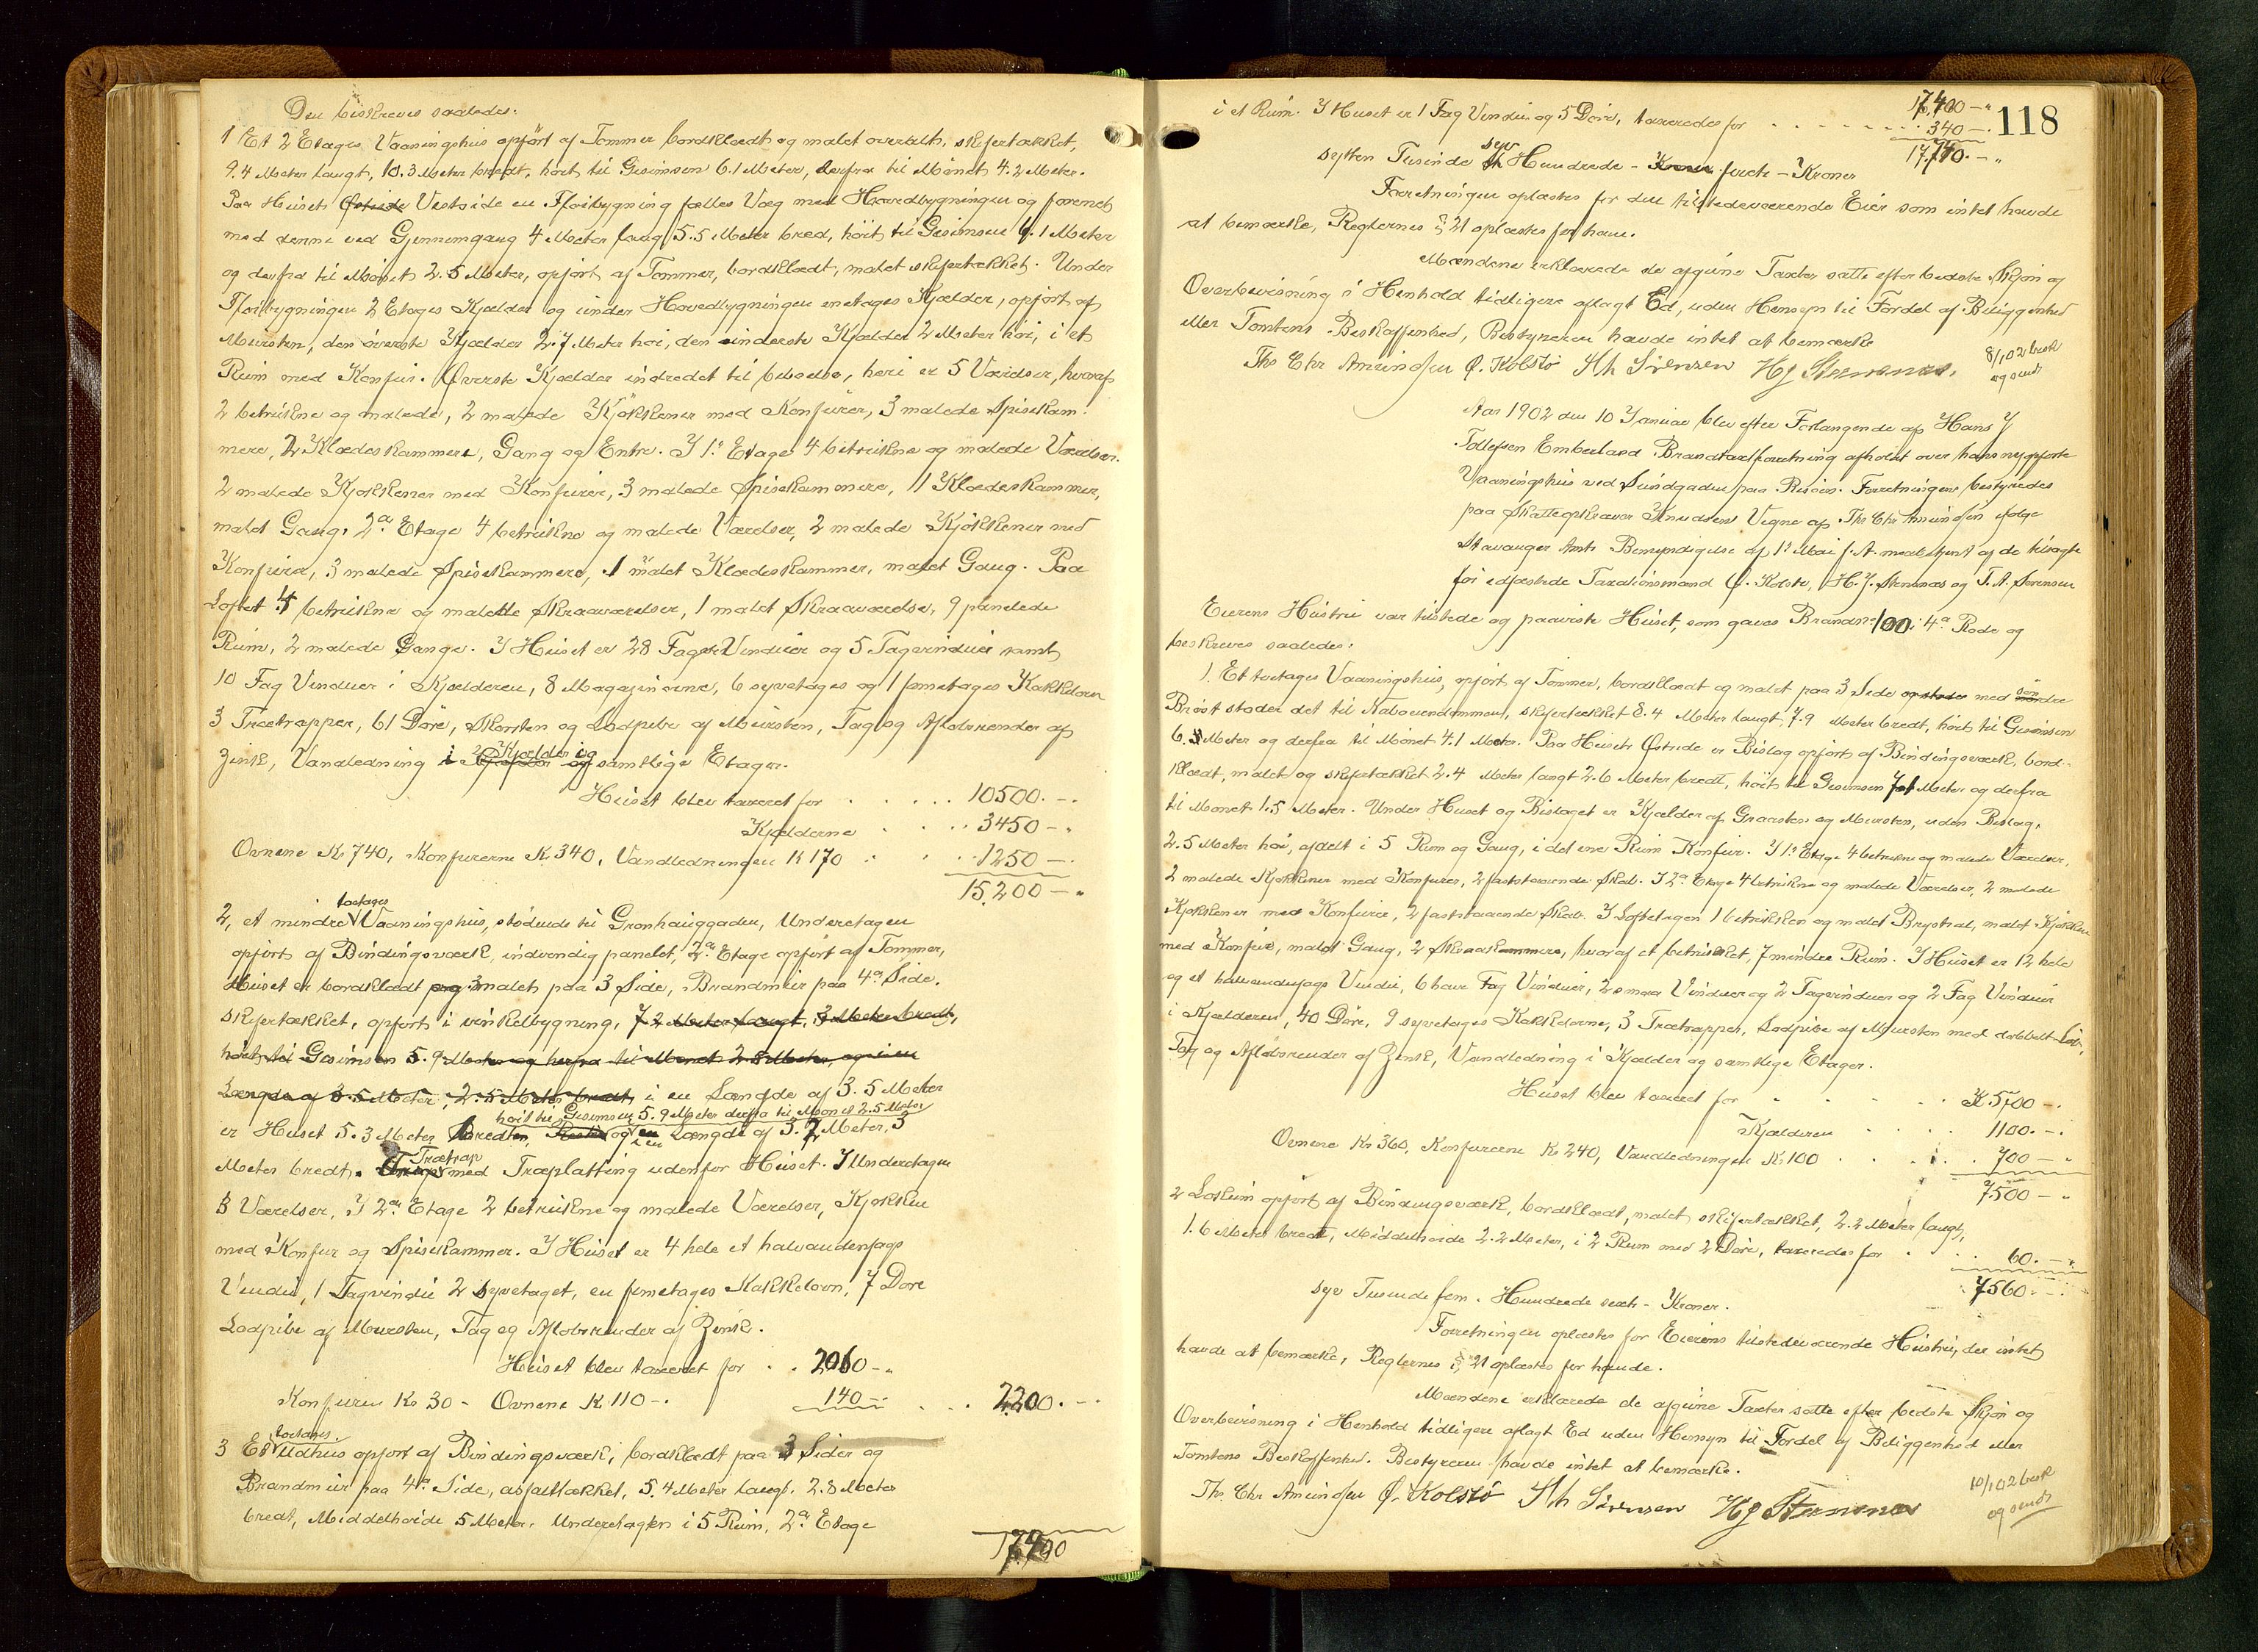 Den beskreves saaledes:
1 Et 2 Etages Vaaningshus opført af Tømmer bordklædt og malet overalt, skifertækket,
9.4 Meter langt, 10.3 Meter bredt, høit til Gesimsen 6.1 Meter, derfra til Mønet 4.2 Meter.
Paa Husets Østside Vestside en Fløibygning fælles Væg med Hovedbygningen og forenet
med denne ved Gjennemgang 4 Meter lang 5.5 Meter bred, høit til Gesimsen 6.1 Meter
og derfra til Mønet 2.5 Meter, opført af Tømmer, bordklædt, malet skifertækket. Under
Fløibygningen 2 Etages Kjælder og under Hovedbygningen enetages Kjælder, opført af
Mursten, den øverste Kjælder 2.7 Meter høi, den underste Kjælder 2 Meter høi, i et
Rum med Konfur. Øverste Kjælder indredet til beboelse, heri er 5 Værelser, hvoraf
2 betrukne og malede, 2 malede Kjøkkener med Konfurer, 3 malede Spisekam-
mere, 2 Klædeskammere, Gang og Entre. I 1ste Etage 4 betrukne og malede Værelser.
2 malede Kjøkkener med Konfurer, 3 malede Spisekammere, 11 Klædeskammer,
malet Gang. 2den Etage 4 betrukne og malede Værelser, 2 malede Kjøkkener med
Konfurer, 3 malede Spisekammere, 1 malet Klædeskammer, malet Gang. Paa
Loftet 4 betrukne og malede Skraaværelser, 1 malet Skraaværelse, 9 panelede
Rum, 2 malede Gange. I Huset er 28 Fag Vinduer og 5 Tagvinduer samt
10 Fag Vinduer i Kjælderen, 8 Magazinovne, 6 syvetages og 1 femetages Kakkelovn
3 Trætrapper, 61 Døre, Skorsten og Lodpibe af Mursten, Tag og Afløbsrender af
Zink, Vandledning i Kjælder og samtlige Etager.
Huset blev taxeret for . . . . . 10500.-.
Kjælderne . . . 3450-.
Ovnene Kr 740, Konfurerne Kr 340, Vandledningen K 170 . . . 1250-.
15,200-"
2, et mindre toetages Vaaningshus, stødende til Grønhauggaden, Underetagen
opført af Bindingsværk, indvendig panelet, 2den Etage opført af Tømmer,
Huset er bordklædt og malet paa 3 Side, Brandmur paa 4de Side.
skifertækket, opført i vinkelbygning, 7.2 Meter langt, 3 Meter bredt,
høit til Gesimsen 5.9 Meter og herfra til Mønet 2.8 Meter, og i en
Længde af 3.5 Meter, 2.5 Meter bredt, i en Længde af 3.5 Meter
høit til Gesimsen 5.9 Meter derfra til Mønet 2.5 Meter
er Huset 5.3 Meter bredt, og i en Længde af 3.7 Meter, 3
Meter bredt. Trætrap med Træplatting udenfor Huset. I Underetagen
3 Værelser, I 2den Etage 2 betrukne og malede Værelser, Kjøkken
med Konfur og Spisekammer. I Huset er 4 hele et halvandenfags
Vindu, 1 Tagvindu 2 syvetaget, en femetages Kakkelovn, 7 Døre
Lodpibe af Mursten, Tag og Afløbsrender af Zink.
Huset blev taxeret for . . 2060-"
Konfuren Kr 30 - Ovnene K 110-. 140- . . . 2200.-
3 Et toetages Udhus opført af Bindingsværk, bordklædt paa 3 Sider og
Brandmur paa 4de Side, asfalttækket, 5.4 Meter langt, 2.8 Meter
bredt, Middelhøide 5 Meter. Underetagen i 5 Rum, 2den Etage
17400
118
i et Rum. I Huset er 1 Fag Vindu og 5 Døre, taxeredes for . . . . . . . 340-.
17,400-"
17,740.-"
sytten Tusinde syv Hundrede - Kroner førti - Kroner
Forretningen oplæstes for den tilstedeværende Eier som intet havde
at bemærke, Reglernes § 21 oplæstes for ham.
Mændene erklærede de afgivne Taxter satte efter bedste Skjøn og
Overbevisning i Henhold tidligere aflagt Ed, uden Hensyn til Fordel af Beliggenhed
eller Tomtens Beskaffenhed, Bestyreren havde intet at bemærke
Ths Chr Amundsen Ø. Kolstø S Th Sørensen HJ Stennenes. 8/1 02 besk
og sendt
Aar 1902 den 10 Januar blev efter Forlangende af Hans J
Tollefsen Emberland Brandtaxtforretning afholdt over hans nyopførte
Vaaningshus ved Sundgaden paa Risøen. Forretningen bestyredes
paa Skatteopkræver Knudsens Vegne af Ths Chr Amundsen ifølge
Stavanger Amts Bemyndigelse af 1ste Mai f. A. med tjent af de tilsagte
før edfæstede Taxationsmænd Ø. Kolstø, H. J. Stennæs og T. A. Sørensen
Eierens Hustru var tilstede og paaviste Huset, som gaves Brandno 100 i 4de Rode og
beskreves saaledes:
1. Et toetages Vaaningshus, opført af Tømmer, bordklædt og malet paa 3 Side og støder med søn
Brøst støder det til Naboeiendommen, skifertækket 8.4 Meter langt, 7.9 Meter bredt, høit til Gesimsen
6.5 Meter og derfra til Mønet 4.1 Meter. Paa Husets Østside er Bislag opført af Bindingsværk, bord-
klædt, malet og skifertækket 2.4 Meter langt 2.6 Meter bredt, høit til Gesimsen 7.1 Meter og derfra
til Mønet 1.5 Meter. Under Huset og Bislaget er Kjælder af Graasten og Mursten, uden Bislag,
2.5 Meter høi, afdelt i 5 Rum og Gang, i det ene Rum Konfur. I 1ste Etage 4 betrukne og malede Værelser,
2 malede Kjøkkener med Konfurer, 2 faststaaende Skab. I 2den Etage 4 betrukne og malede Værelser, 2 malede
Kjøkkener med Konfurer, 2 faststaaende Skab. I Loftetagen 1 betrukken og malet Brystsal, malet Kjøkken
med Konfur, malet Gang, 2 Skraakammere, hvoraf et betrukket, 7 mindre Rum. I Huset er 12 hele
og et halvandenfags Vindu, 6 halve Fag Vinduer, 2 smaa Vinduer og 2 Tagvinduer og 2 Fag Vinduer
i Kjælderen, 40 Døre, 9 syvetages Kakkelovne, 3 Trætrapper, Lodpibe af Mursten med dobbelt Løb,
Tag og Afløbsrender af Zink, Vandledning i Kjælder og samtlige Etager.
Huset blev taxeret for . . . . . K 5700-.
Kjælderen . . . . 1100.-.
Ovnene Kr 360, Konfurerne Kr 240, Vandledningen Kr 100 . . . . 700-"
7500-"
2 Lokum opført af Bindingsværk, bordklædt, malet skifertækket, 2.2 Meter langt,
1.6 Meter bredt, Middelhøide 2.2 Meter, i 2 Rum med 2 Døre, taxeredes for . . . 60.-"
7560.-
syv Tusinde fem - Hundrede sexti - Kroner.
Forretningen oplæstes for Eierens tilstedeværende Hustru, der intet
havde at bemærke, Reglernes § 21 oplæstes for hende.
Mændene erklærede de afgivne Taxter satte efter bedste Skjøn og
Overbevisning i Henhold tidligere aflagt Ed uden Hensyn til Fordel af Beliggenhed eller
Tomtens Beskaffenhed. Bestyreren havde intet at bemærke.
Ths. Chr Amundsen Ø. Kolstø S Th Sørensen HJ Stennenes 10/1 02 besk
og sendt